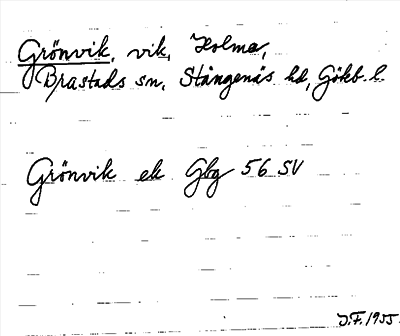 Grönvik, vik, Holma,
Brastads sn, Stångenäs hd, Göhb. l.
Grönvik ek Gbg 56 SV
J.F. 1955